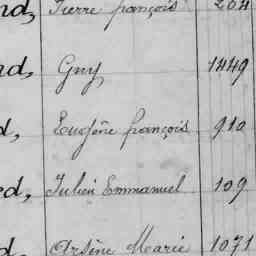 nd, Pierre françois 204
nd, Guy 1449
d, Eugène françois 910
ed, Julien Emmanuel 109
d, Arsène Marie 1071